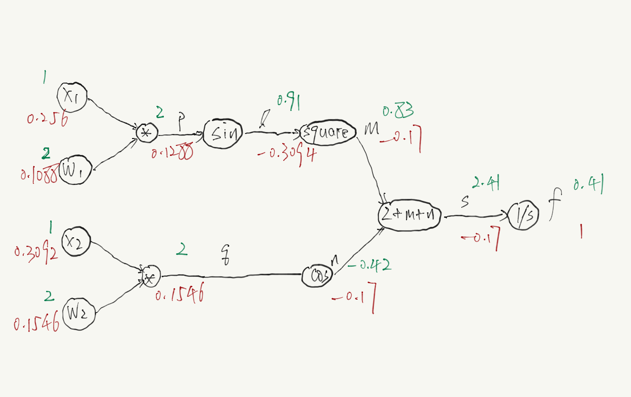 1
x1
0.256
2
W1
0.1088
*
2
p
0.1288
sin
l
0.91
-0.3094
square
m
0.83
-0.17
1
x2
0.3092
2
W2
0.1546
*
2
q
0.1546
cos
n
-0.42
-0.17
2+m+n
s
2.41
-0.17
1/s
f
0.41
1